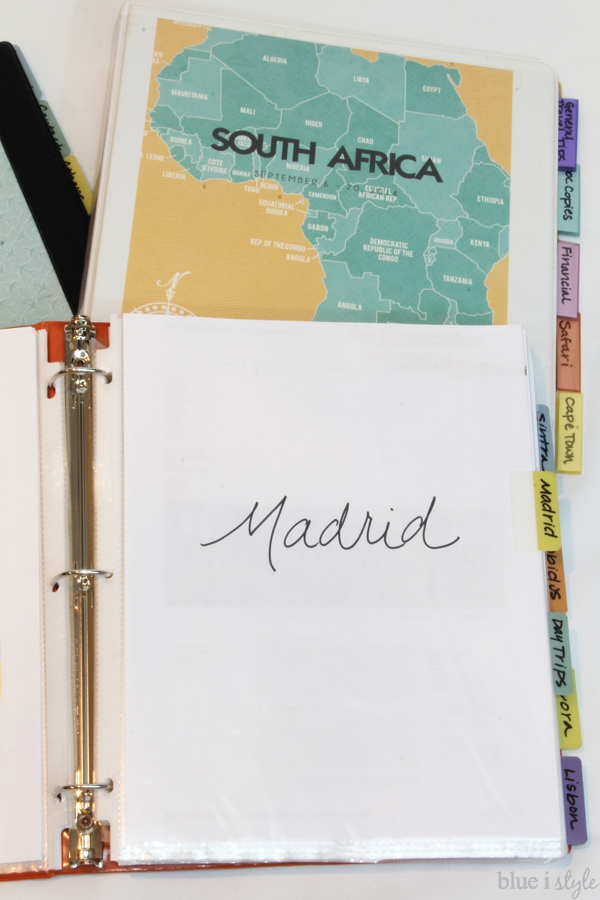 ALGERIA
LIBYA
EGYPT
MAURITANIA
MALI
NIGER
CHAD
SUDAN
SOUTH AFRICA
SEPTEMBER 6
GUINEA
COTE
D'IVOIRE
GHANA
TOGO
BENIN
NIGERIA
LIBERIA
CAMEROON
CENTRAL
AFRICAN REP
ETHIOPIA
EQUATORIAL
GUINEA
GABON
REP OF THE CONGO
DEMOCRATIC
REPUBLIC OF THE
CONGO
UGANDA
KENYA
TANZANIA
ANGOLA
ANGOLA
N
General
Travel Docs
Copies
Financial
Safari
Cape Town
Sintra
Madrid
Madrid
bidos
Day Trips
ora
Lisbon
blue i style